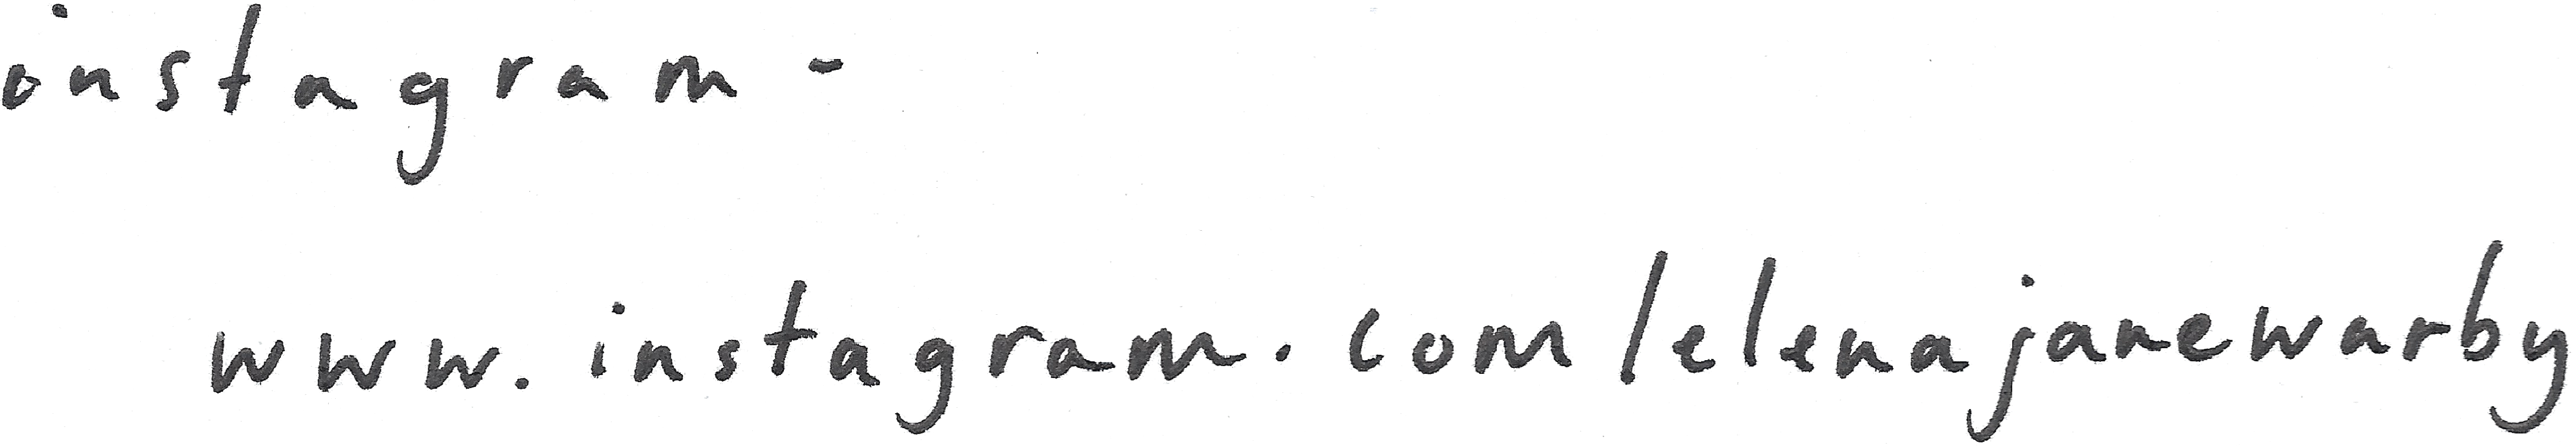 instagram -
www.instagram.com/elenajanewarby